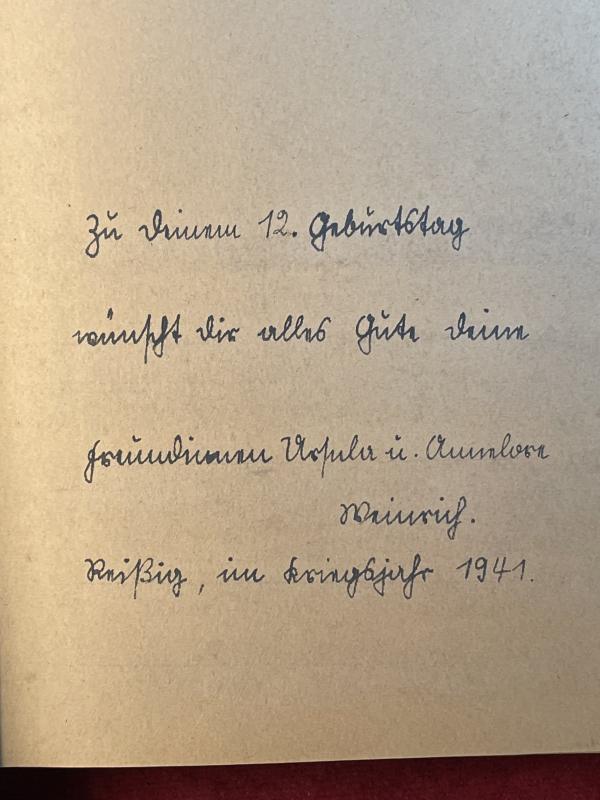 Zu deinem 12. Geburtstag
wünscht dir alles Gute deine
Freundinnen Ursula u. Annelore
Weinrich.
Reißig, im Kriegsjahr 1941.